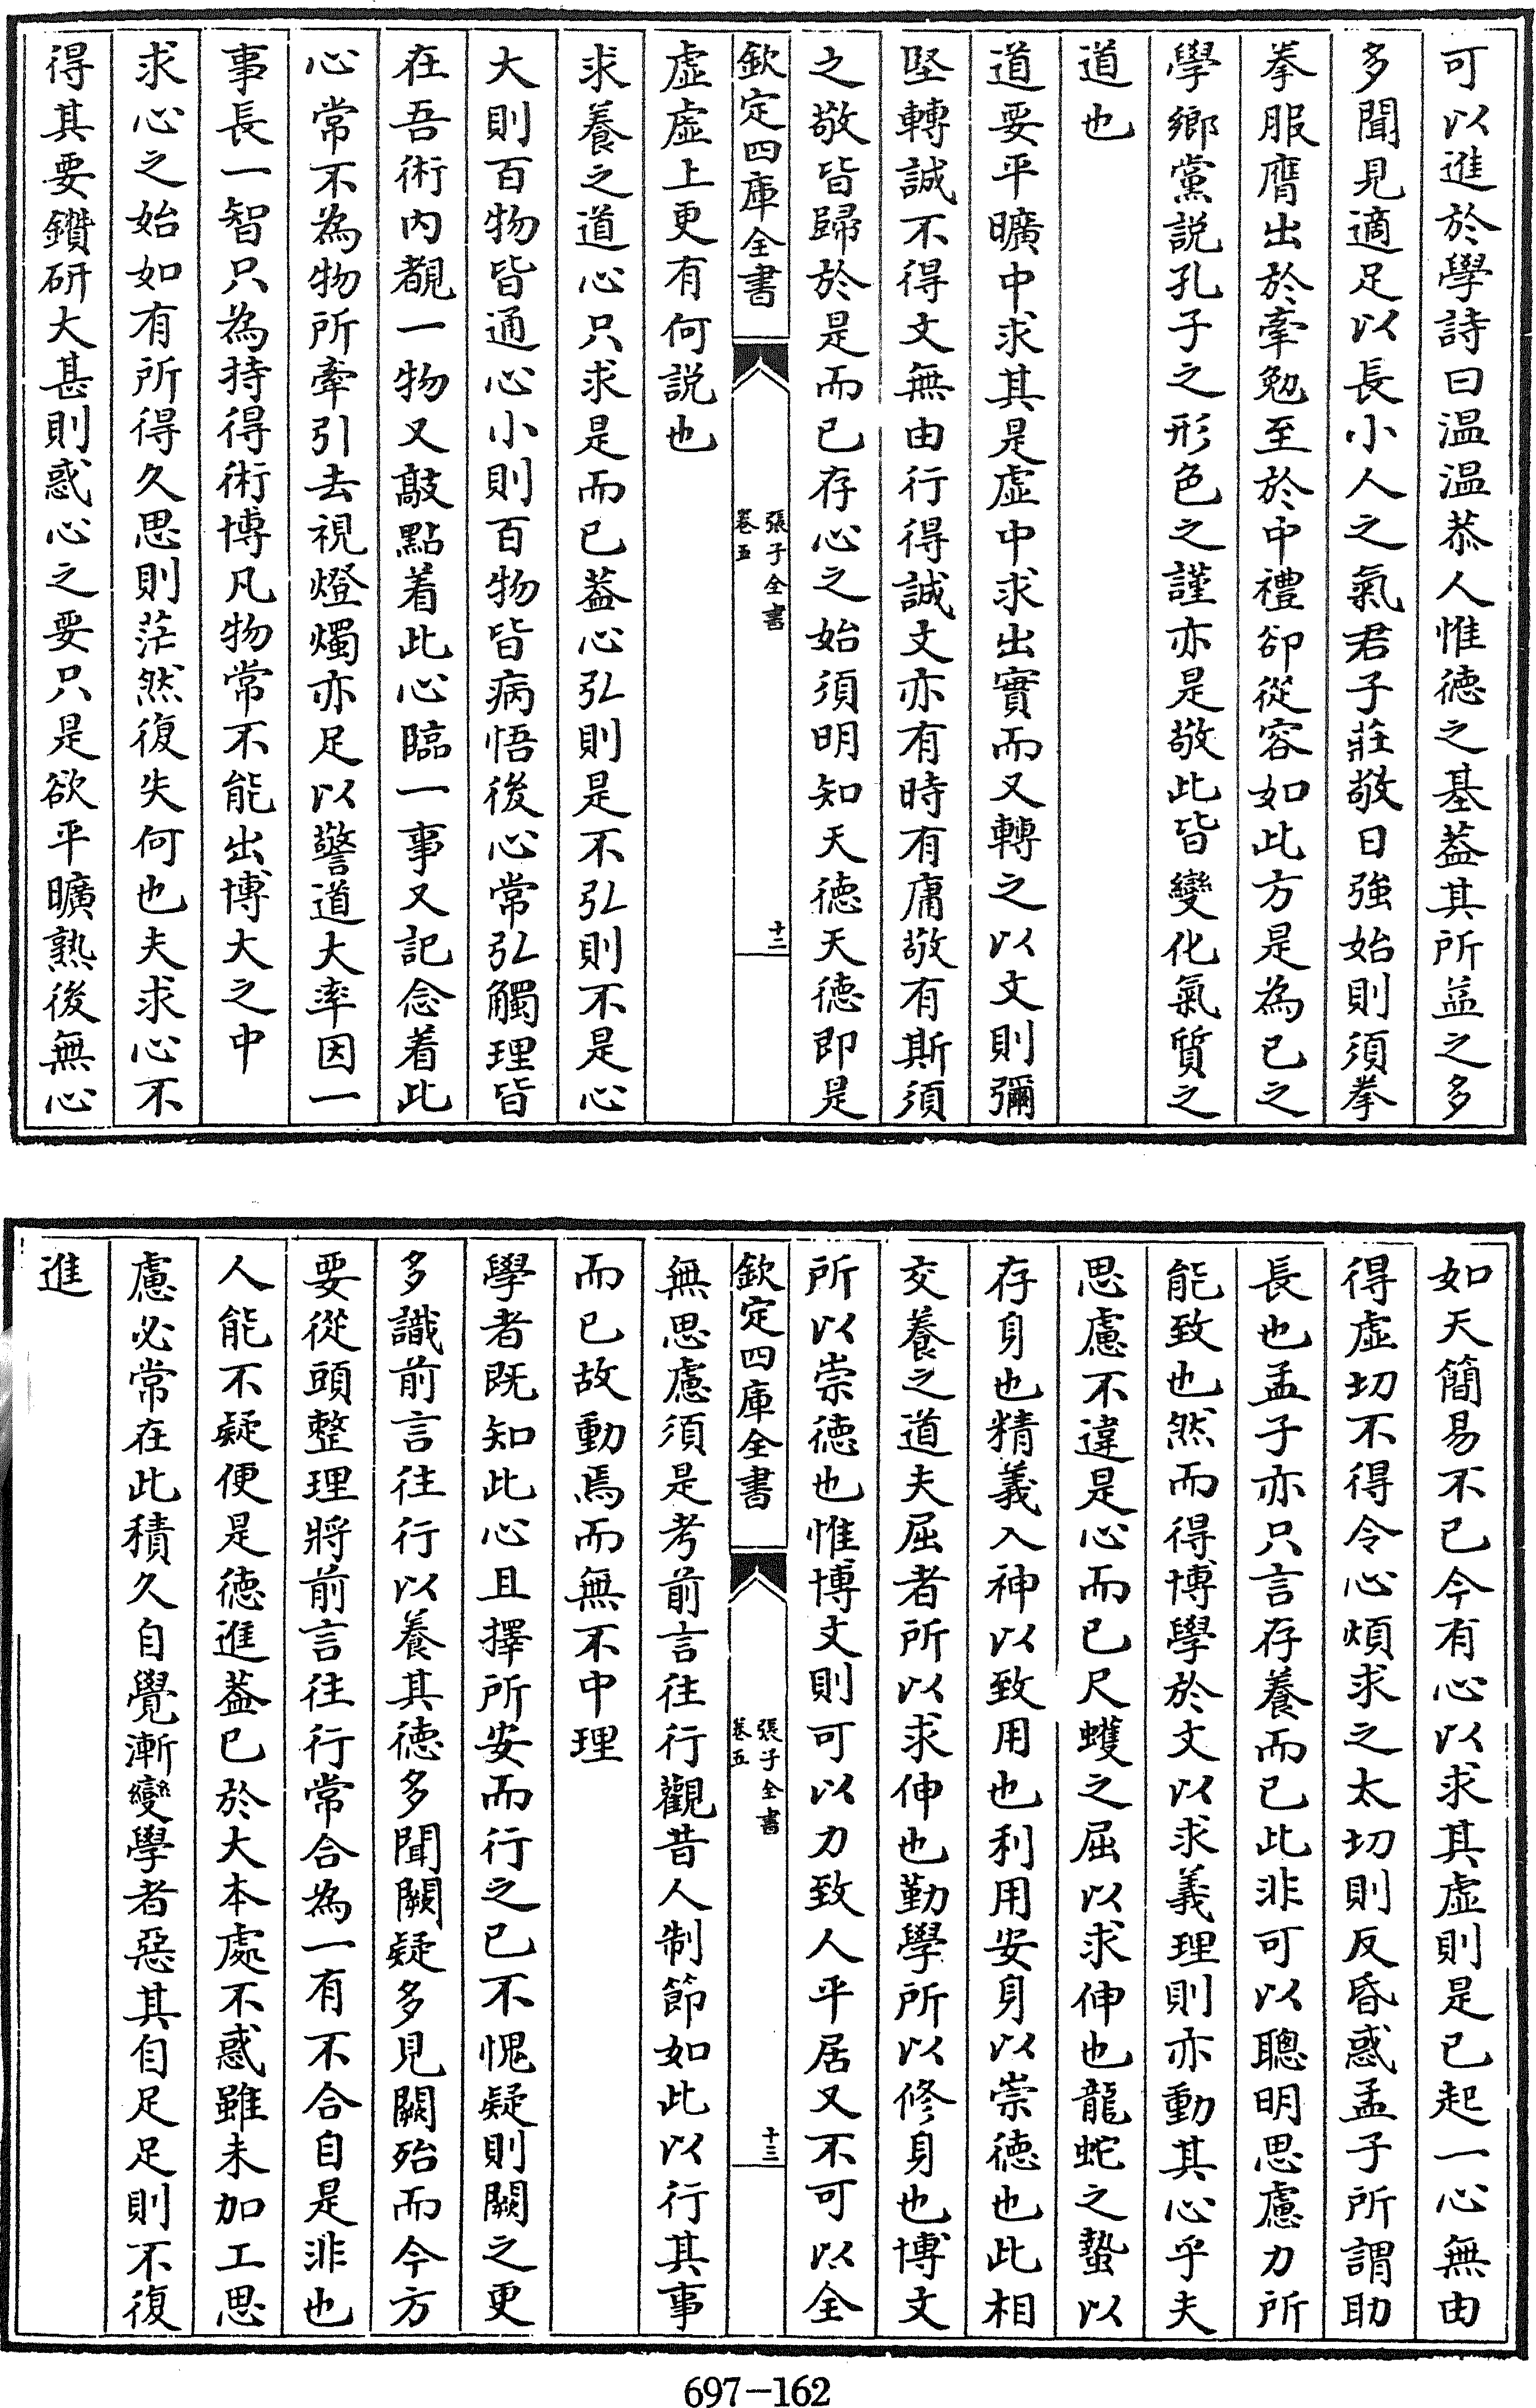 可以進於學詩曰温温恭人惟徳之基葢其所益之多
多聞見適足以長小人之氣君子莊敬日強始則須拳
拳服膺出於牽勉至於中禮卻從容如此方是為已之
學鄉黨説孔子之形色之謹亦是敬此皆變化氣質之
道也
道要平曠中求其是虚中求出實而又轉之以文則彌
堅轉誠不得文無由行得誠文亦有時有庸敬有斯須
之敬皆歸於是而已存心之始須明知天徳天徳即是
欽定四庫全書
張子全書
卷五
十二
虚虚上更有何説也
求養之道心只求是而已葢心弘則是不弘則不是心
大則百物皆通心小則百物皆病悟後心常弘觸理皆
在吾術内覩一物又敲點着此心臨一事又記念着此
心常不為物所牽引去視燈燭亦足以警道大率因一
事長一智只為持得術博凡物常不能出博大之中
求心之始如有所得久思則茫然復失何也夫求心不
得其要鑽研大甚則惑心之要只是欲平曠熟後無心
如天簡易不已今有心以求其虚則是已起一心無由
得虚切不得令心煩求之太切則反昏惑孟子所謂助
長也孟子亦只言存養而已此非可以聰明思慮力所
能致也然而得博學於文以求義理則亦動其心乎夫
思慮不違是心而已尺蠖之屈以求伸也龍蛇之蟄以
存身也精義入神以致用也利用安身以崇徳也此相
交養之道夫屈者所以求伸也勤學所以修身也博文
所以崇徳也惟博文則可以力致人平居又不可以全
欽定四庫全書
張子全書
卷五
十三
無思慮須是考前言往行觀昔人制節如此以行其事
而已故動焉而無不中理
學者既知此心且擇所安而行之已不愧疑則闕之更
多識前言往行以養其徳多聞闕疑多見闕殆而今方
要從頭整理將前言往行常合為一有不合自是非也
人能不疑便是徳進葢已於大本處不惑雖未加工思
慮必常在此積久自覺漸變學者惡其自足足則不復
進
697-162